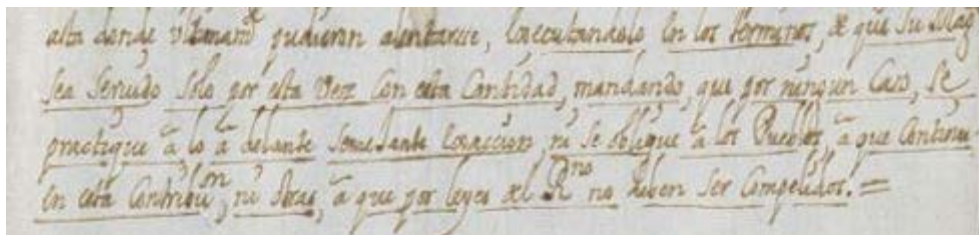 alta donde Vltimamte pudieron alentarse, executandolo en los terminos, de que Su Magd
sea Seruido solo por esta Vez Con esta Cantidad, mandando, que por ningun Caso, se
practique â lo â delante Semejante exaccion, ni se oblique â los Pueblos, â que Continuen
en esta Contribuon, ni otras, â que por leyes del Rno no deben ser Compelidos. =